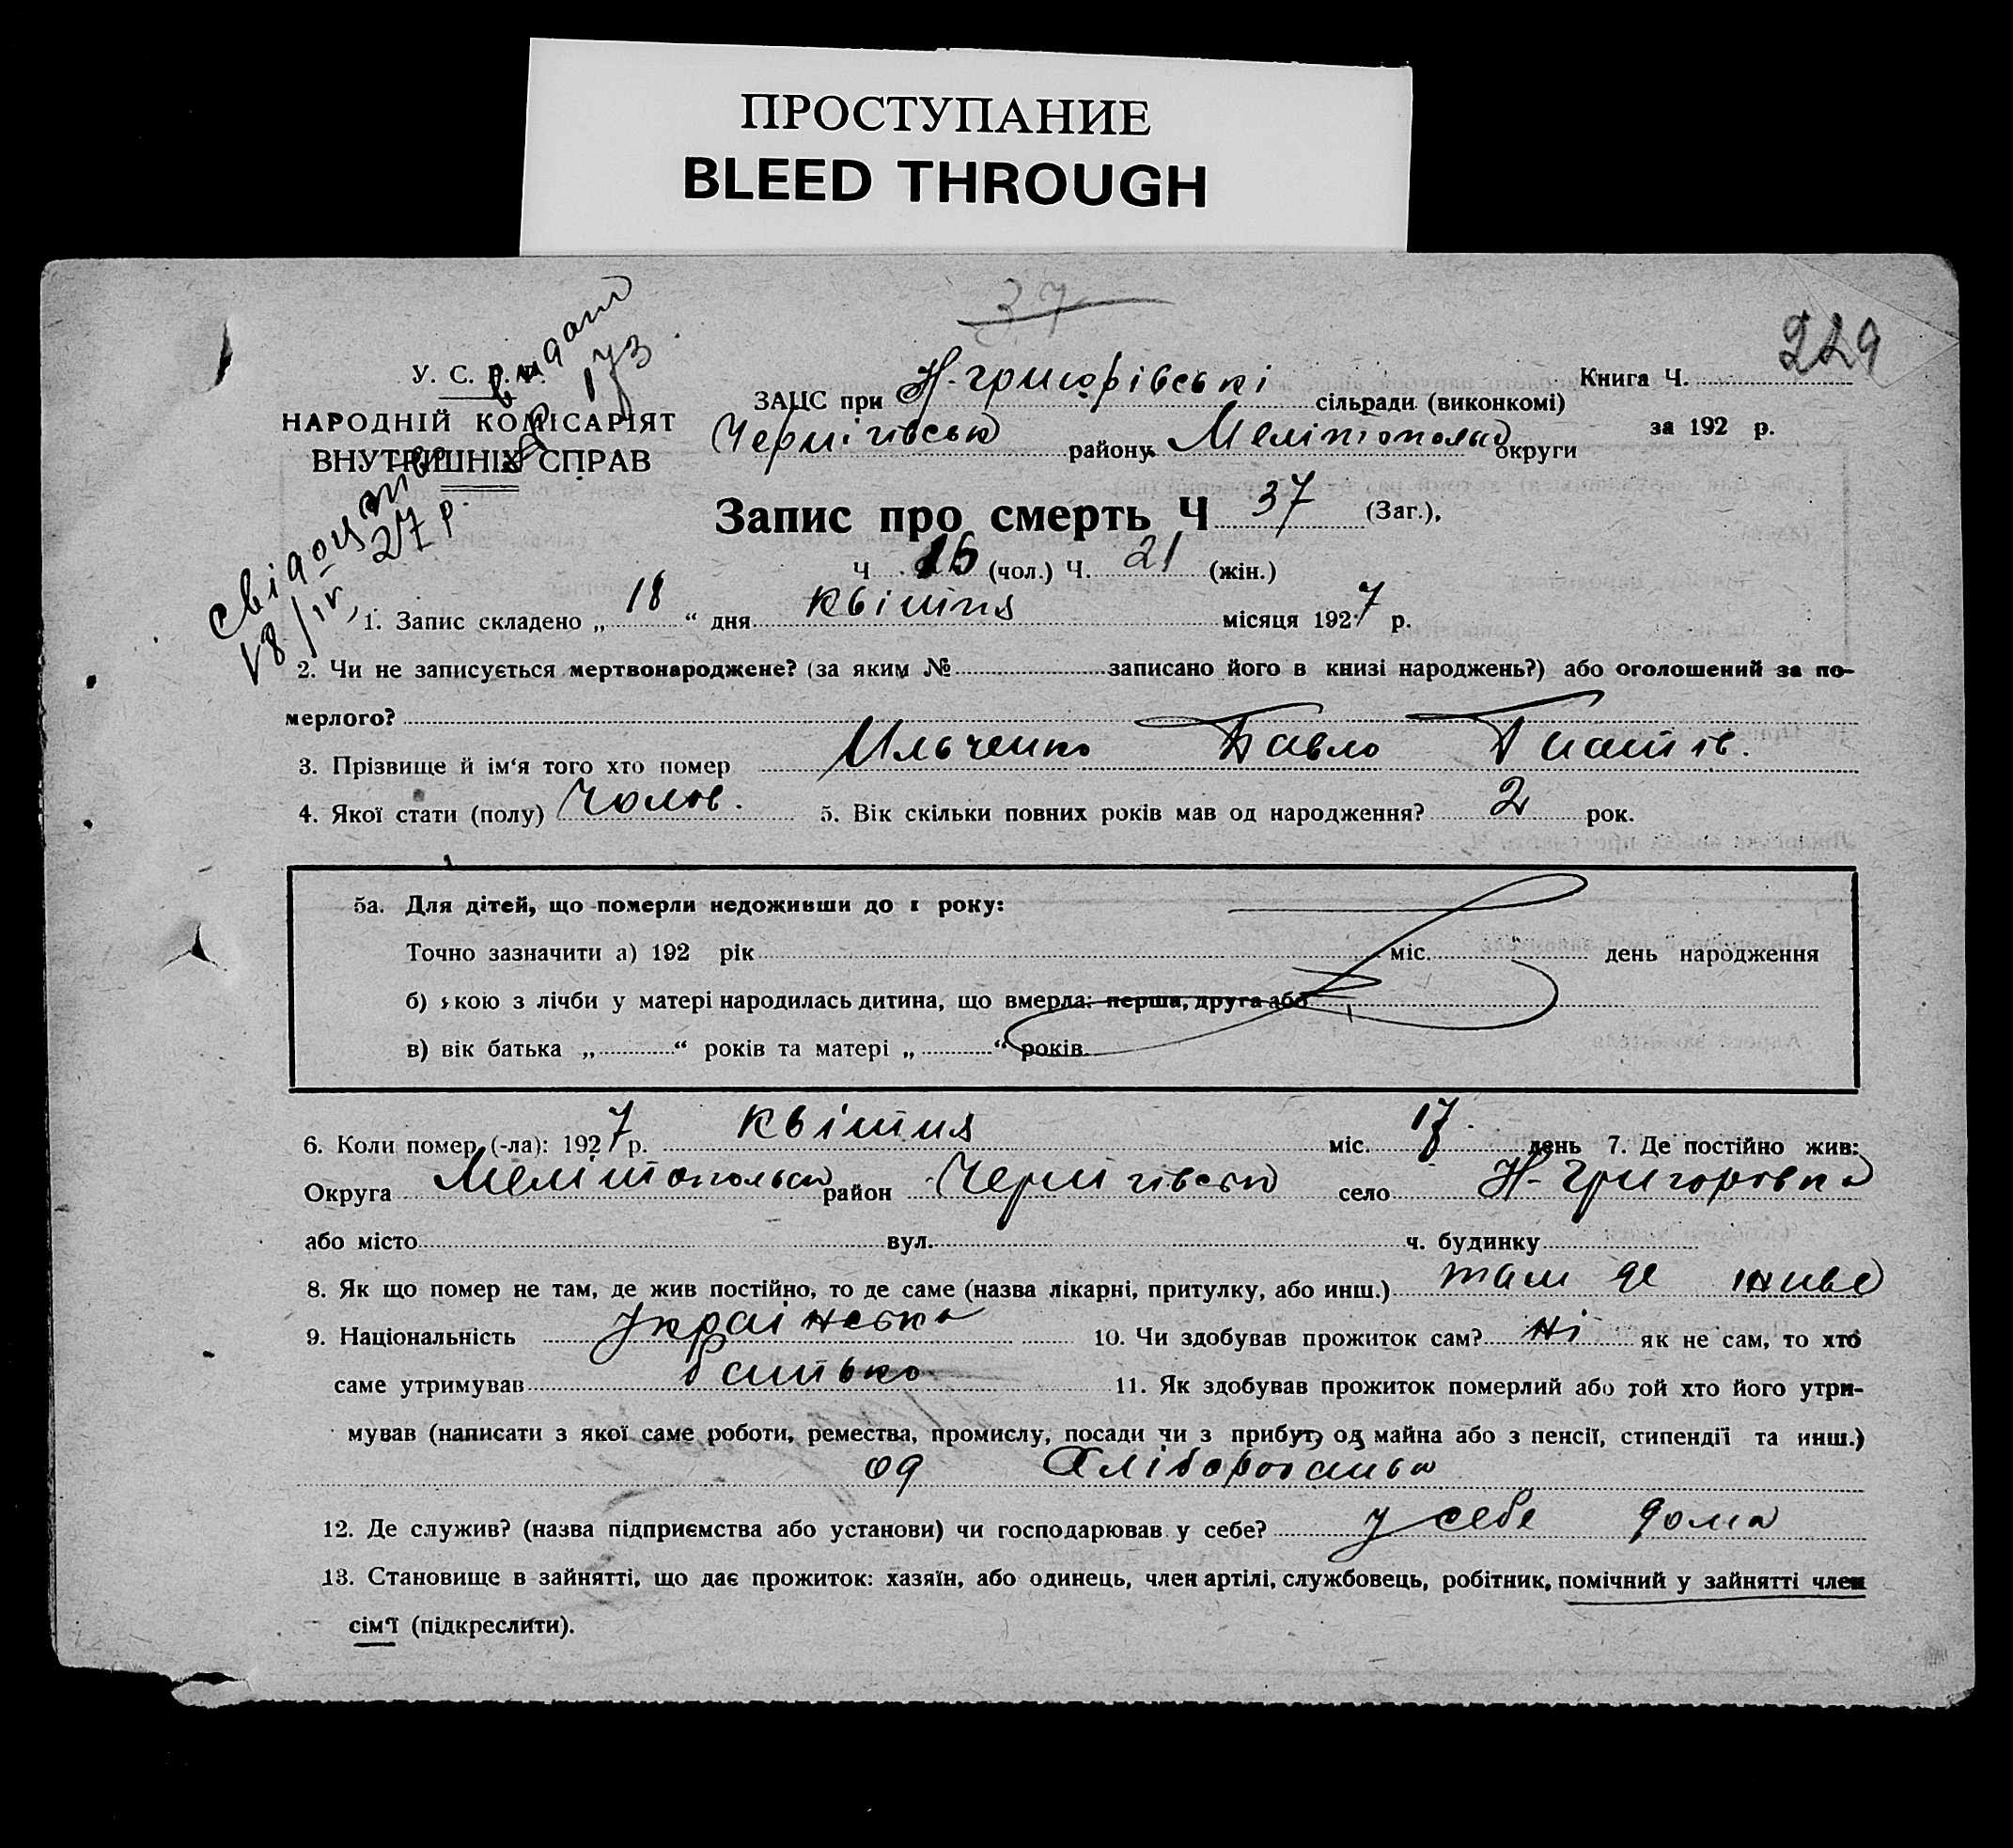 ПРОСТУПАНИЕ
BLEED THROUGH
37
229
У. С. Р. Р.
НАРОДНІЙ КОМІСАРІЯТ
ВНУТРІШНІХ СПРАВ
свідоцтво видано
18/IV 27 р. 173
ЗАЦС при Н-григорівські сільради (виконкомі)
Книга Ч.
за 192 р.
Чернігівськ району Мелітопольс округи
Запис про смерть Ч 37 (Заг.),
Ч 16 (чол.) Ч. 21 (жін.)
1. Запис складено „ 18 “ дня квітня місяця 1927 р.
2. Чи не записується мертвонароджене? (за яким № записано його в книзі народжень?) або оголошений за по-
мерлого?
3. Прізвище й ім‘я того хто помер Ильченко Павло Гнатів.
4. Якої стати (полу) Чолов. 5. Вік скільки повних років мав од народження? 2 рок.
5а. Для дітей, що померли недоживши до 1 року:
Точно зазначити а) 192 рік міс. “ день народження
б) якою з лічби у матері народилась дитина, що вмерла: перша, друга або
в) вік батька „ “ років та матері „ “ років
6. Коли помер (-ла): 1927 р. квітня міс. 17 день 7. Де постійно жив:
Округа Мелітопольськ район Чернігівськ село Н-Григоровка
або місто вул. ч. будинку
8. Як що помер не там, де жив постійно, то де саме (назва лікарні, притулку, або инш.) там де живе
9. Національність Українська 10. Чи здобував прожиток сам? ні як не сам, то хто
саме утримував батько 11. Як здобував прожиток померлий або той хто його утри-
мував (написати з якої саме роботи, ремества, промислу, посади чи з прибут, од майна або з пенсії, стипендії та инш.)
од Хліборобства
12. Де служив? (назва підприємства або установи) чи господарював у себе? у себе дома
13. Становище в зайнятті, що дає прожиток: хазяїн, або одинець, член артілі, службовець, робітник, помічний у зайнятті член
сім‘ї (підкреслити).